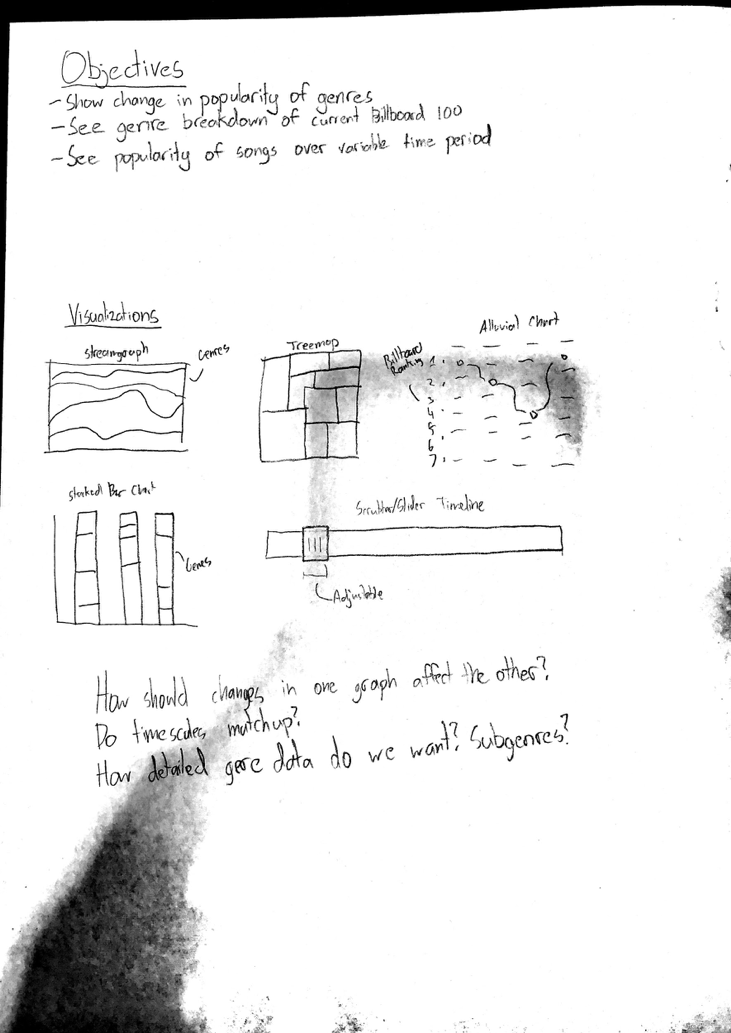 Objectives
- Show change in popularity of genres
- See genre breakdown of current Billboard 100
- See popularity of songs over variable time period
Visualizations
Streamgraph
Genres
Treemap
Alluvial Chart
Billboard
Ranking
1.
2.
3
4
5
6
7.
Stacked Bar Chart
Genres
Scrubber/Slider Timeline
Adjustable
How should changes in one graph affect the other?
Do timescales matchup?
How detailed gere data do we want? Subgenres?